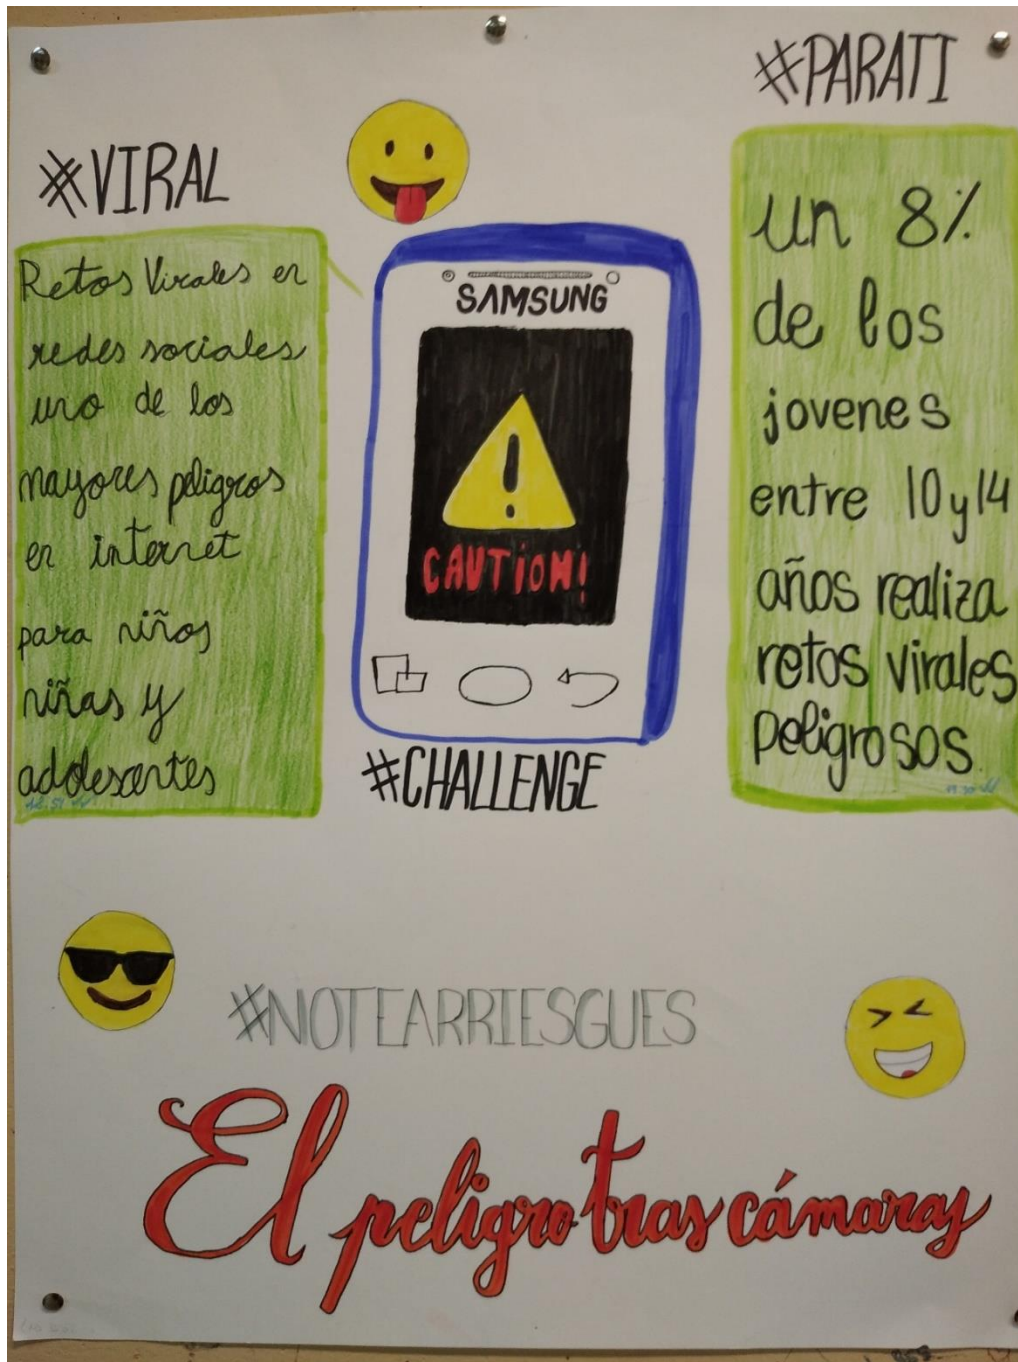 #PARATI
#VIRAL
Retos Virales en
redes sociales
uno de los
mayores peligros
en internet
para niños
niñas y
adolescentes
SAMSUNG
CAUTION!
#CHALLENGE
un 8%
de los
jovenes
entre 10 y 14
años realiza
retos virales
peligrosos
#NOTEARRIESGUES
El peligro tras cámaras